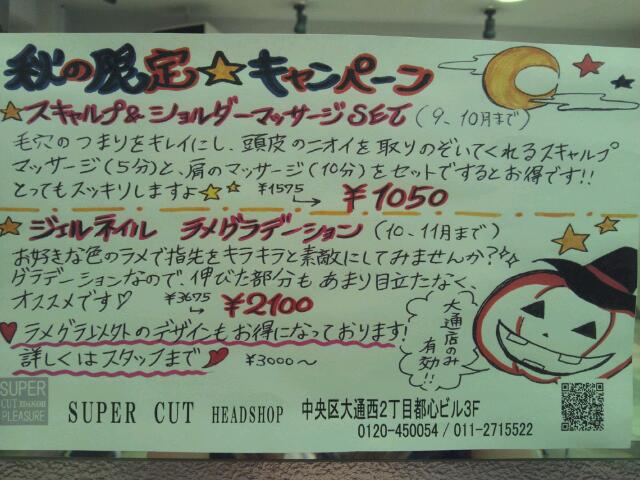 秋の限定☆キャンペーン
☆スキャルプ&ショルダーマッサージSET (9、10月まで)
毛穴のつまりをキレイにし、頭皮のニオイを取りのぞいてくれるスキャルプ
マッサージ(5分)と、肩のマッサージ(10分)をセットでするとお得です!!
とってもスッキリしますよ☆☆ ¥1575 → ¥1050
☆ジェルネイル ラメグラデーション (10、11月まで)
お好きな色のラメで指先をキラキラと素敵にしてみませんか?
グラデーションなので、伸びた部分もあまり目立たなく、
オススメです♡ ¥3675 → ¥2100
♥ラメグラ以外のデザインもお得になっております!
詳しくはスタッフまで♥ ¥3000~
大通店のみ
有効!!
SUPER
CUT
PLEASURE
SUPER CUT HEADSHOP 中央区大通西2丁目都心ビル3F
0120-450054 / 011-2715522